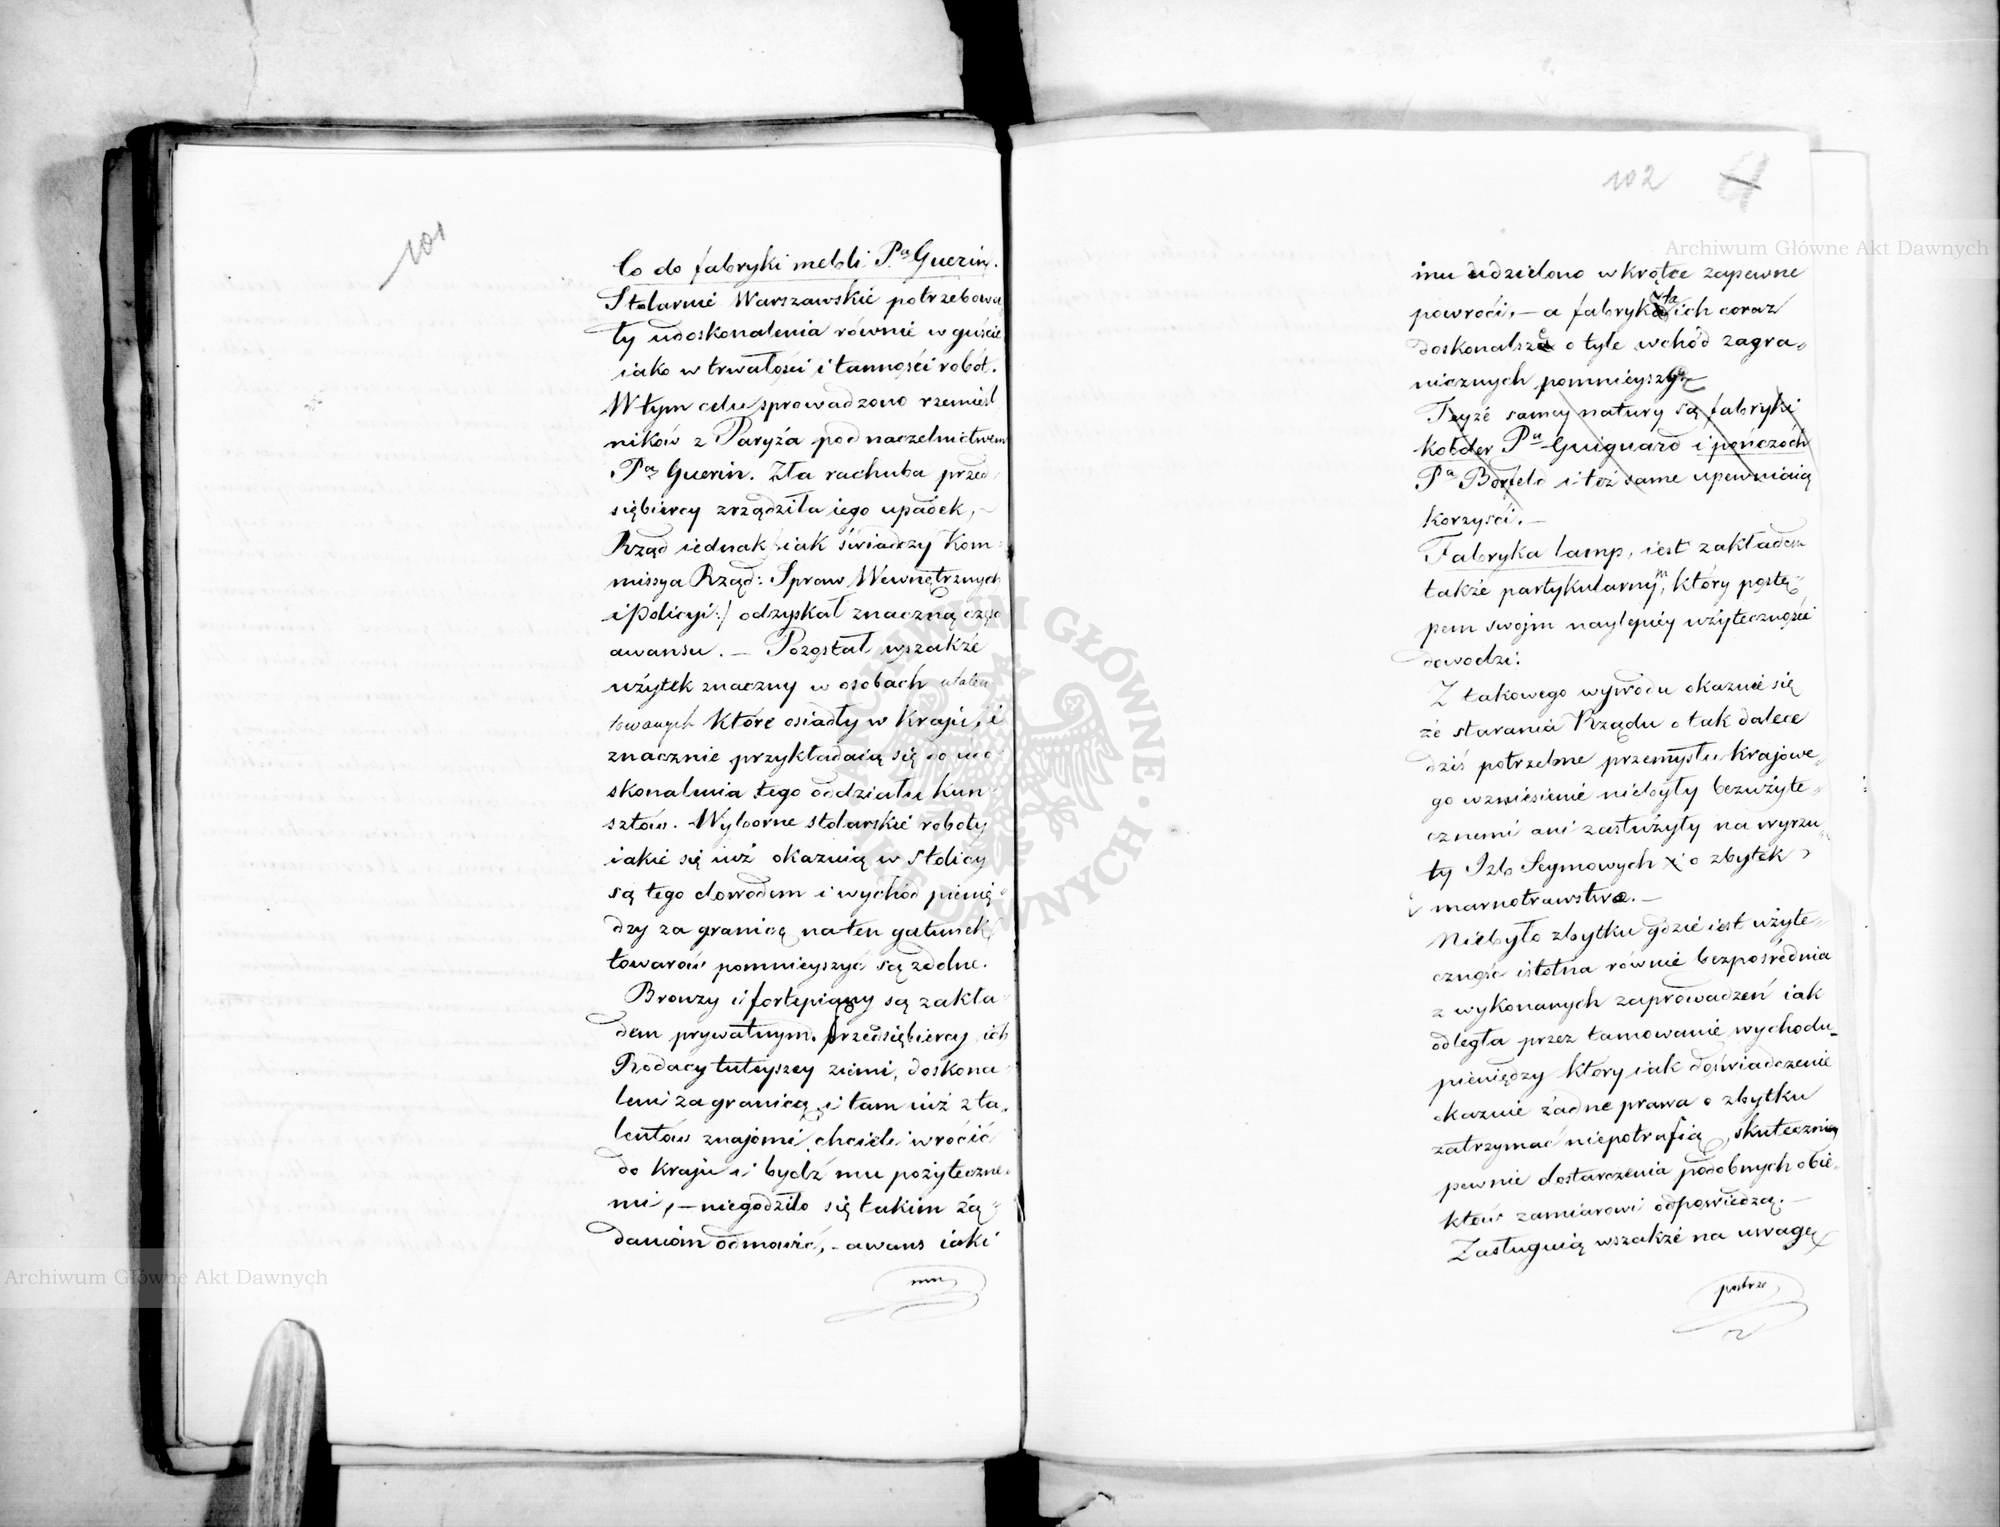 101
Co do fabryki mebli Pa Guerin.
Stolarnie Warszawskie potrzebowa
ły udoskonalenia równie w guście
iako w trwałości i tanności robót.
W tym celu sprowadzono rzemieśl
ników z Paryża pod naczelnictwem
Pa Guerin. Zła rachuba przed
siębiercy zrządziła iego upadek, –
Rząd iednak /: iak świadczy Kom
missya Rząd: Spraw Wewnętrznych
i Policyi :/ odzyskał znaczną część
awansu. – Pozostał wszakże
użytek znaczny w osobach utalen
towanych które osiadły w Kraju, i
znacznie przykładaią się do udo
skonalenia tego oddziału kun
sztów. Wyborne stolarskie roboty
iakie się iuż okazuią w stolicy
są tego dowodem i wychód pienię
dzy za granicę na ten gatunek
towarów pomnieyszyć są zdolne.
Bronzy i fortepiany są zakła
dem prywatnym. Przedsiębiercy ich
Rodacy tuteyszey ziemi, doskona
leni za granicą i tam iuż z ta
lentów znajomi chcieli wrócić
do kraju i bydź mu pożyteczne
mi, – niegodziło się takim żą
daniom odmówić, – awans iaki
imu
102
61
imu udzielono wkrótce zapewne
powróci, – a fabrykata ich coraz
doskonalsze o tyle wchód zagra
nicznych pomnieysza
Teyże samey natury są fabryki
kołder Pa Guiguard i pończoch
Pa Borfeld i też same upewniaią
korzyści. –
Fabryka lamp, iest zakładem
także partykularnym, który postę
pem swojm naylepiey użyteczności
dowodzi.
Z takowego wywodu okazuie się
że starania Rządu o tak dalece
dziś potrzebne przemysłu krajowe
go wzniesienie niebyły bezużyte
cznemi ani zasłużyły na wyrzu
ty Izb Seymowych o zbytek
i marnotrawstwo. –
Niebyło zbytku gdzie iest użyte
czność istotna równie bezpośrednia
z wykonanych zaprowadzeń iak
odległa przez tamowanie wychodu
pieniędzy który iak doświadczenie
okazuie żadne prawa o zbytku
zatrzymać niepotrafią, skuteczniey
pewnie dostarczenia podobnych obie
któw zamiarowi odpowiedzą. –
Zasługuią wszakże na uwagę
postrze
Archiwum Główne Akt Dawnych
Archiwum Główne Akt Dawnych
ARCHIWUM GŁÓWNE AKT DAWNYCH